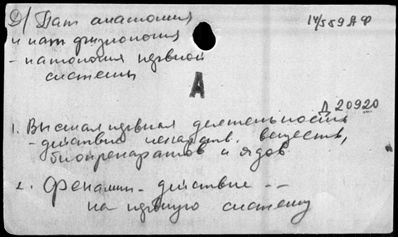 2) Пат анатомия
14/559 АФ
и пат физиология
- патология нервной
системы
А
Д 20920
1. Высшая нервная деятельность
- действие лекарств. веществ,
биопрепаратов и ядов
2. Фенамин - действие --
на нервную систему